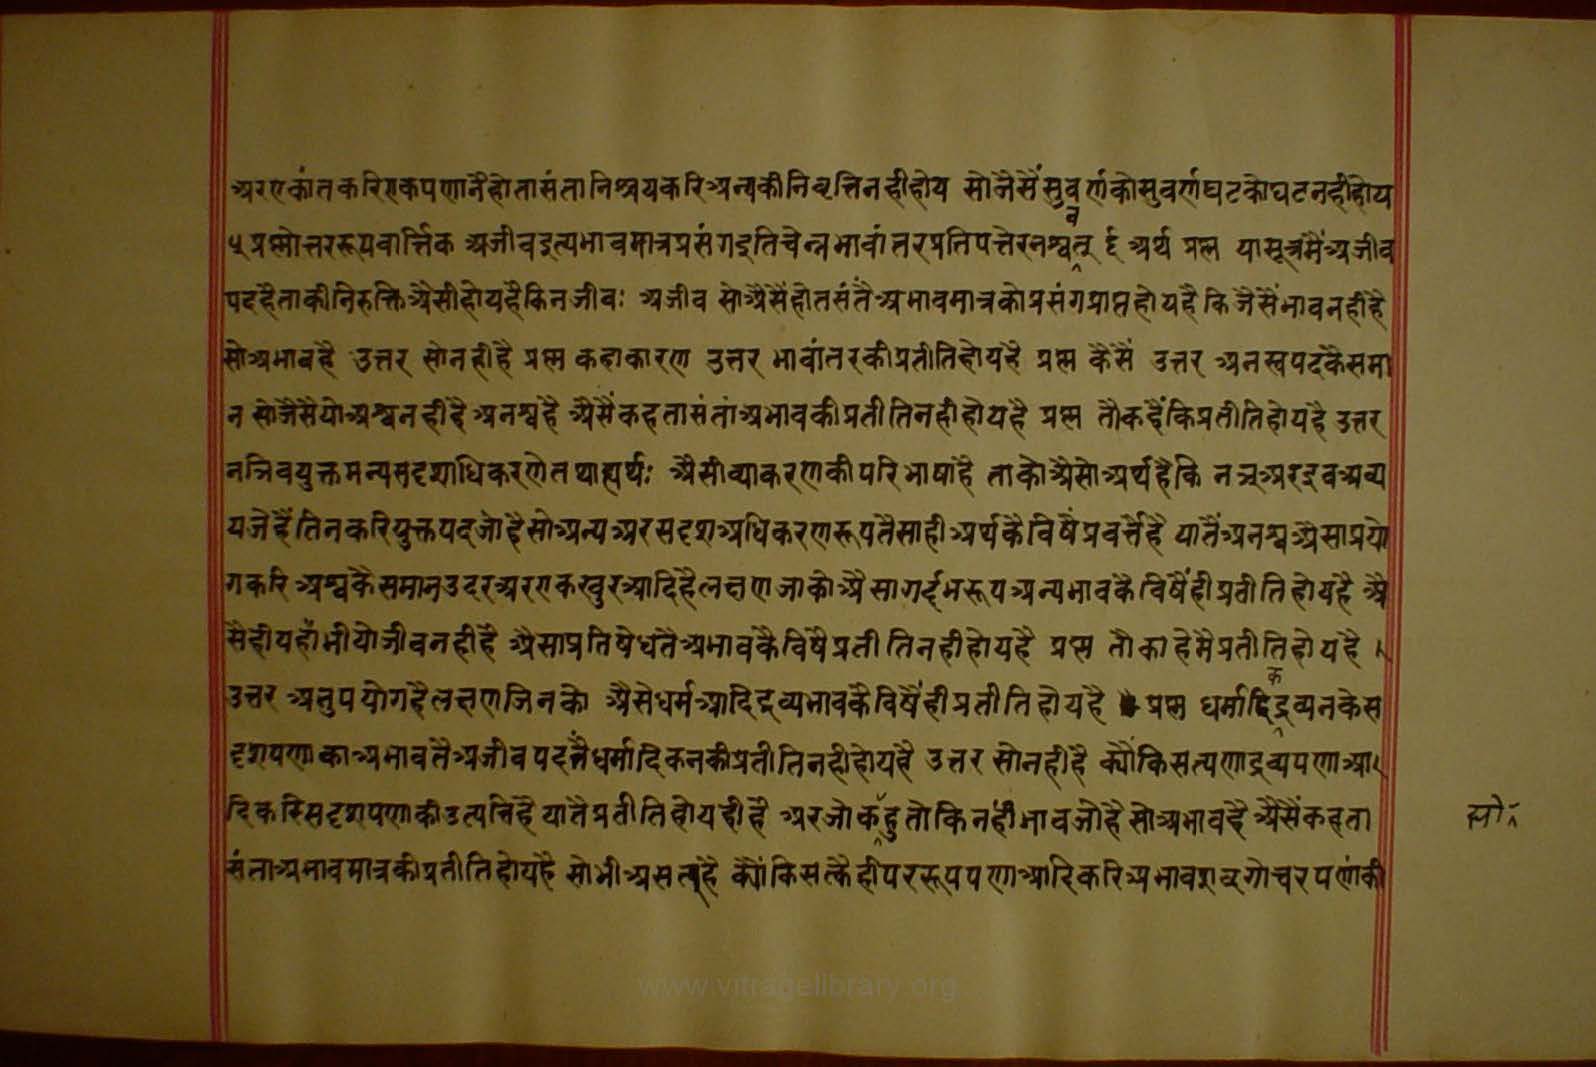 अरएकांतकरिएकपणानैंहोतासंतानिश्चयकरिअन्यकीनिवृत्तिनहीहोय सोजैसैंसुवर्णकोसुवर्णघटकोघटनहीहोय
५ प्रश्नोत्तररूपवार्त्तिक अजीवइत्यभावमात्रप्रसंगइतिचेन्नभावांतरप्रतिपत्तेरनश्ववत् र्द्द अर्थ प्रश्न यासूत्रमैंअजीव
पदहैताकीनिरुक्तिअैसीहोयहैकिनजीवः अजीव सोअैसैंहोतसंतैंअभावमात्रकोप्रसंगप्राप्तहोयहै किजैसैंभावनहीहै
सोअभावहै उत्तर सोनहीहै प्रश्न कहाकारण उत्तर भावांतरकीप्रतीतिहोयहै प्रश्न कैसैं उत्तर अनस्वपदकैसमा
न सोजैसैयोअश्वनहीहै अनश्वहै अैसैंकहतासंतांअभावकीप्रतीतिनहीहोयहै प्रश्न तौकहैंकिप्रतीतिहोयहै उत्तर
नञिवयुक्तमन्यसदृशाधिकरणेतथाह्यर्थः अैसीव्याकरणकीपरिभाषाहै ताकोअैसोअर्थहैकि नञ्अरइवअव्य
यजेहैंतिनकरियुक्तपदजोहैसोअन्यअरसदृशअधिकरणरूपतैसाहीअर्थकैविषैंप्रवर्त्तैहै यातैंअनश्वअैसाप्रयो
गकरि अश्वकैसमानउदरअरएकखुरआदिहैलक्षणजाकोअैसागर्दभरूपअन्यभावकैविषैंहीप्रतीतिहोयहै अै
सैहीयहांभीयोजीवनहीहै अैसाप्रतिषेधतैअभावकैविषैप्रतीतिनहीहोयहै प्रश्न तौकाहेमैप्रतीतिहोयहै ।
उत्तर अनुपयोगहैलक्षणजिनको अैसेधर्मआदिद्रव्यभावकैविषैंहीप्रतीतिहोयहै प्रश्न धर्मादिकद्रव्यनकेस
दृशपणाकाअभावतैअजीवपदतैंधर्मादिकनकीप्रतीतिनहीहोयहै उत्तर सोनहीहै क्यौंकिसत्पणाद्रव्यपणाआ।
दिकरिसदृशपणाकीउत्पत्तिहै यातैप्रतीतिहोयहीहै अरजोकहुतोकिनहीभावजोहैसोअभावहैअैसैंकहता
संताअभावमात्रकीप्रतीतिहोयहै सोभीअसत्यहै क्यौंकिसत्कैहीपररूपपणाआदिकरिअभावशब्दगोचरपणांकी